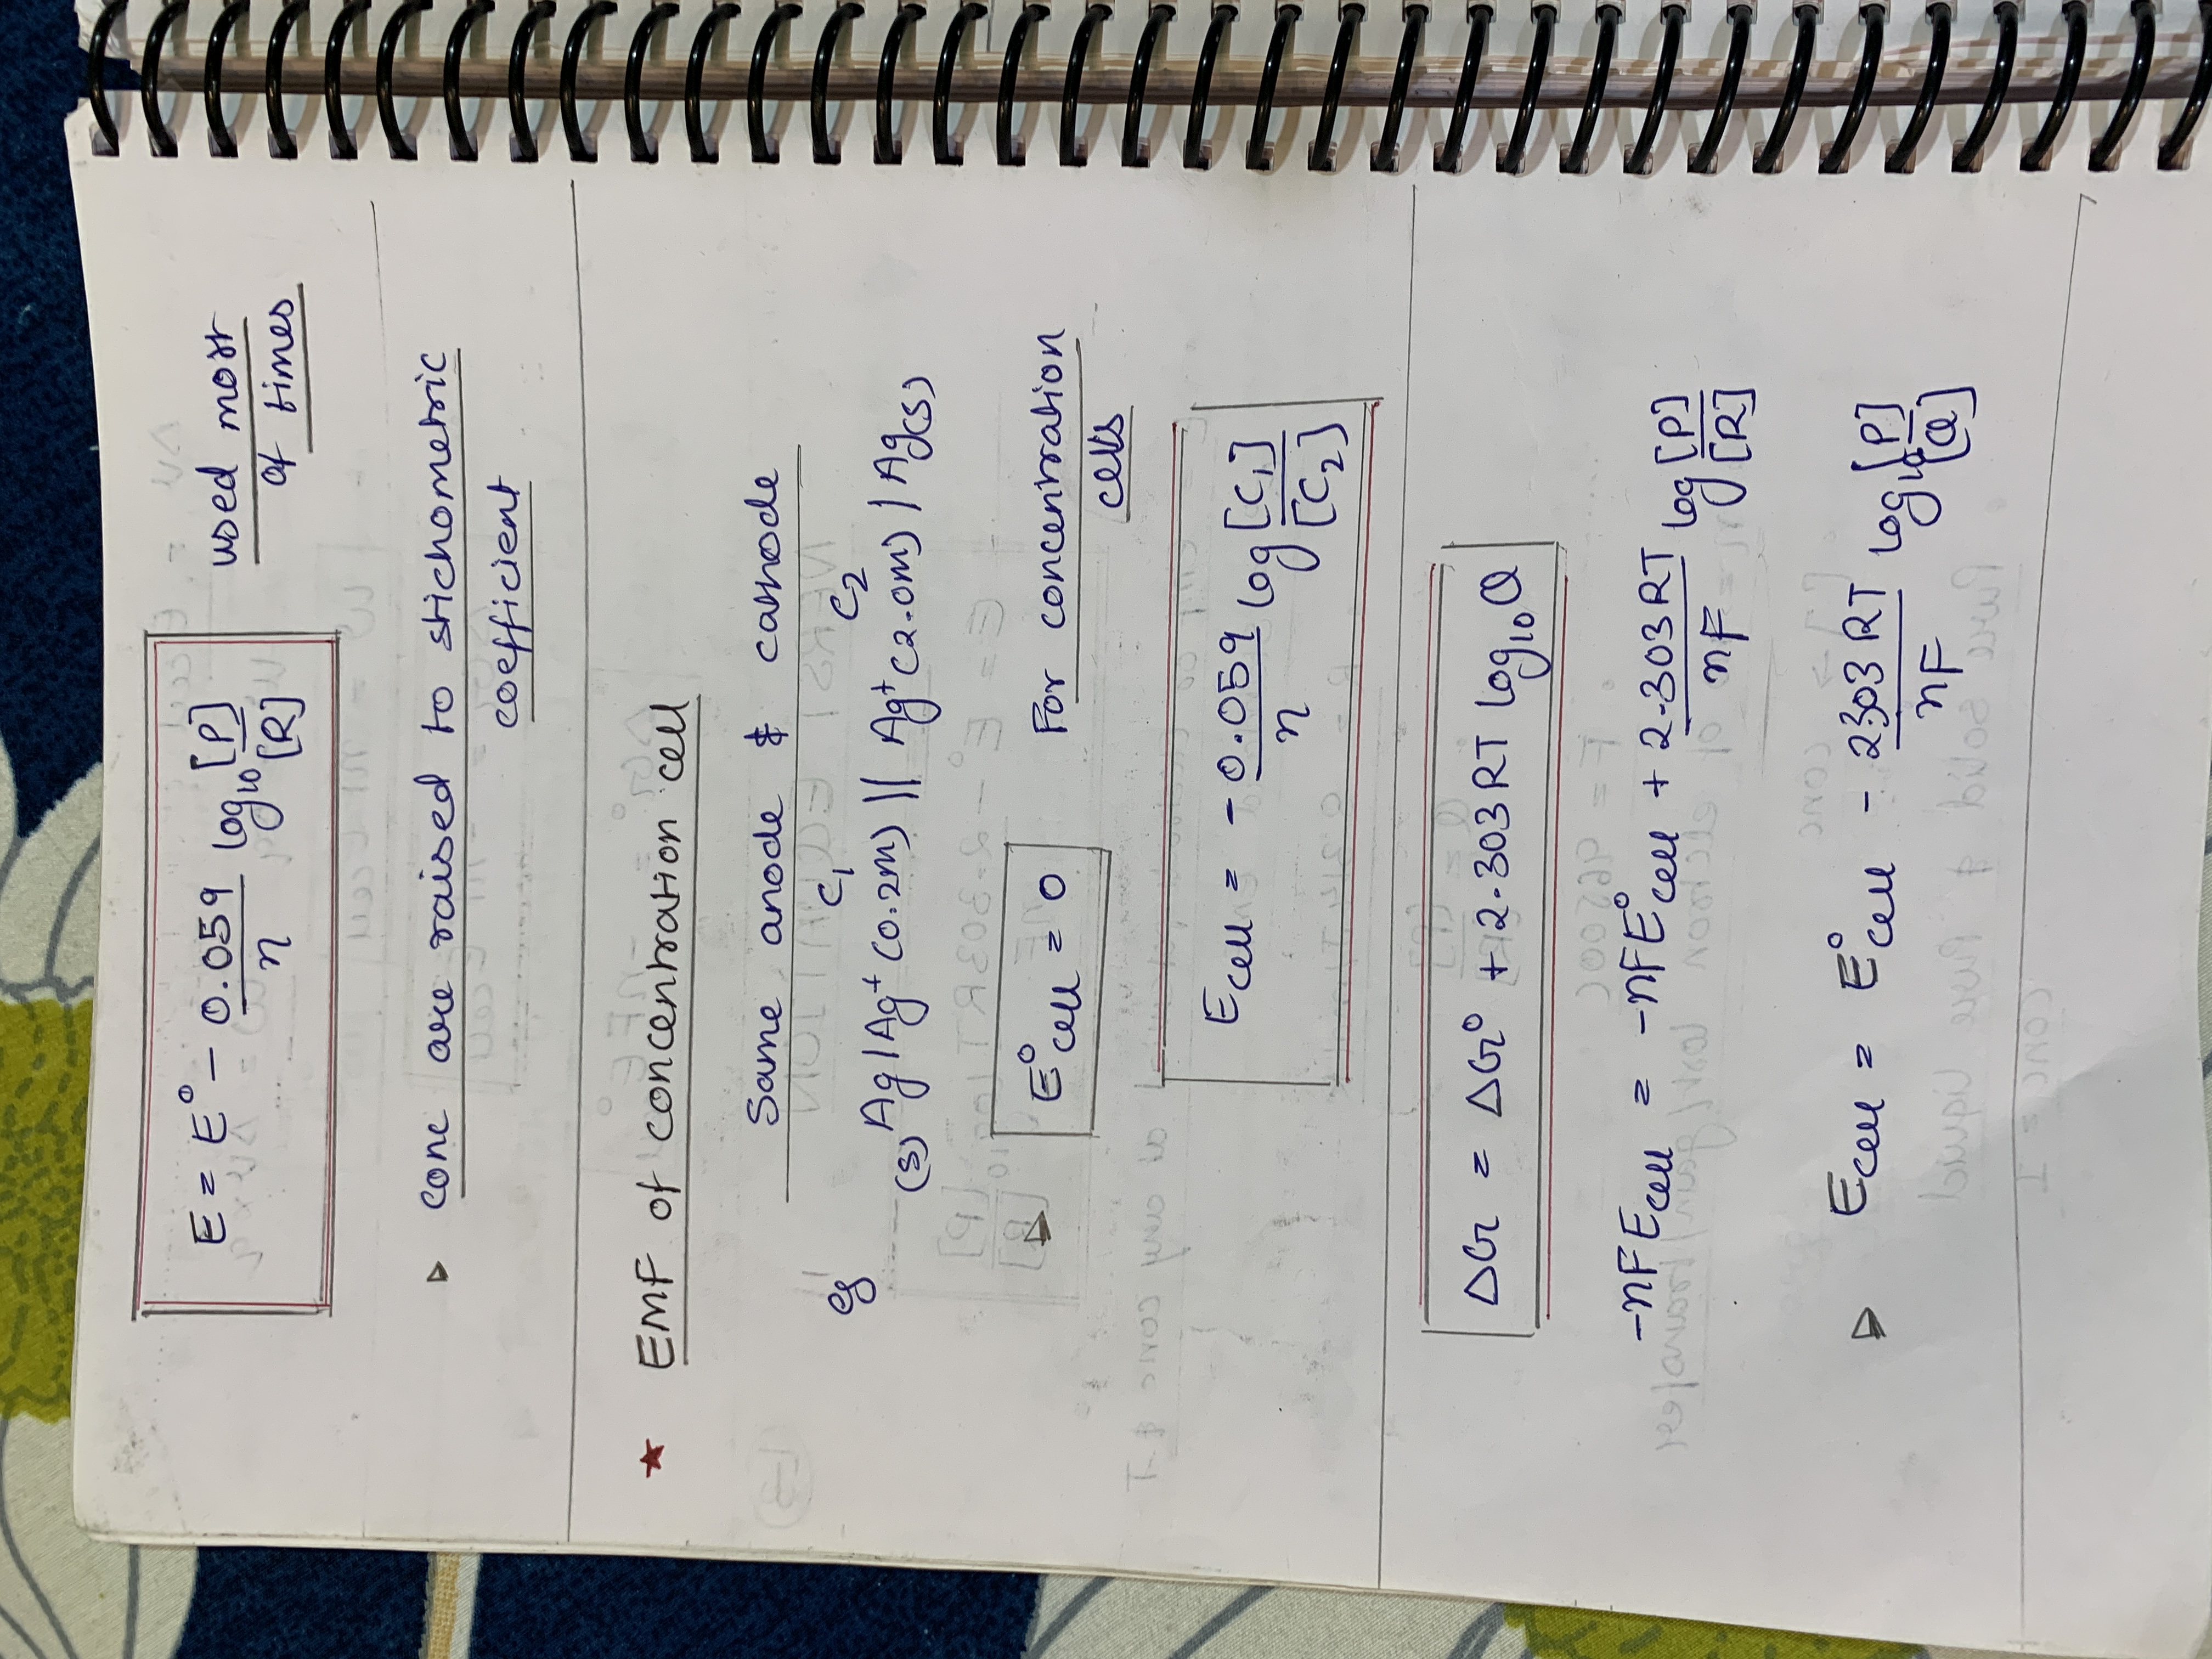 E = E° - 0.059/n log₁₀ [P]/[R] used most of times
▷ conc are raised to stichometric
coefficient
★ EMF of concentration cell
Same anode & cathode
C₁ C₂
eg (s) Ag | Ag⁺ (0.2M) || Ag⁺ (2.0M) | Ag(s)
▷ E°cell = 0 For concentration
cells
Ecell = - 0.059/n log [C₁]/[C₂]
ΔG = ΔG° + 2.303 RT log₁₀ Q
-nFEcell = -nFE°cell + 2.303 RT/nF log [P]/[R]
▷ Ecell = E°cell - 2303 RT/nF log₁₀ [P]/[Q]